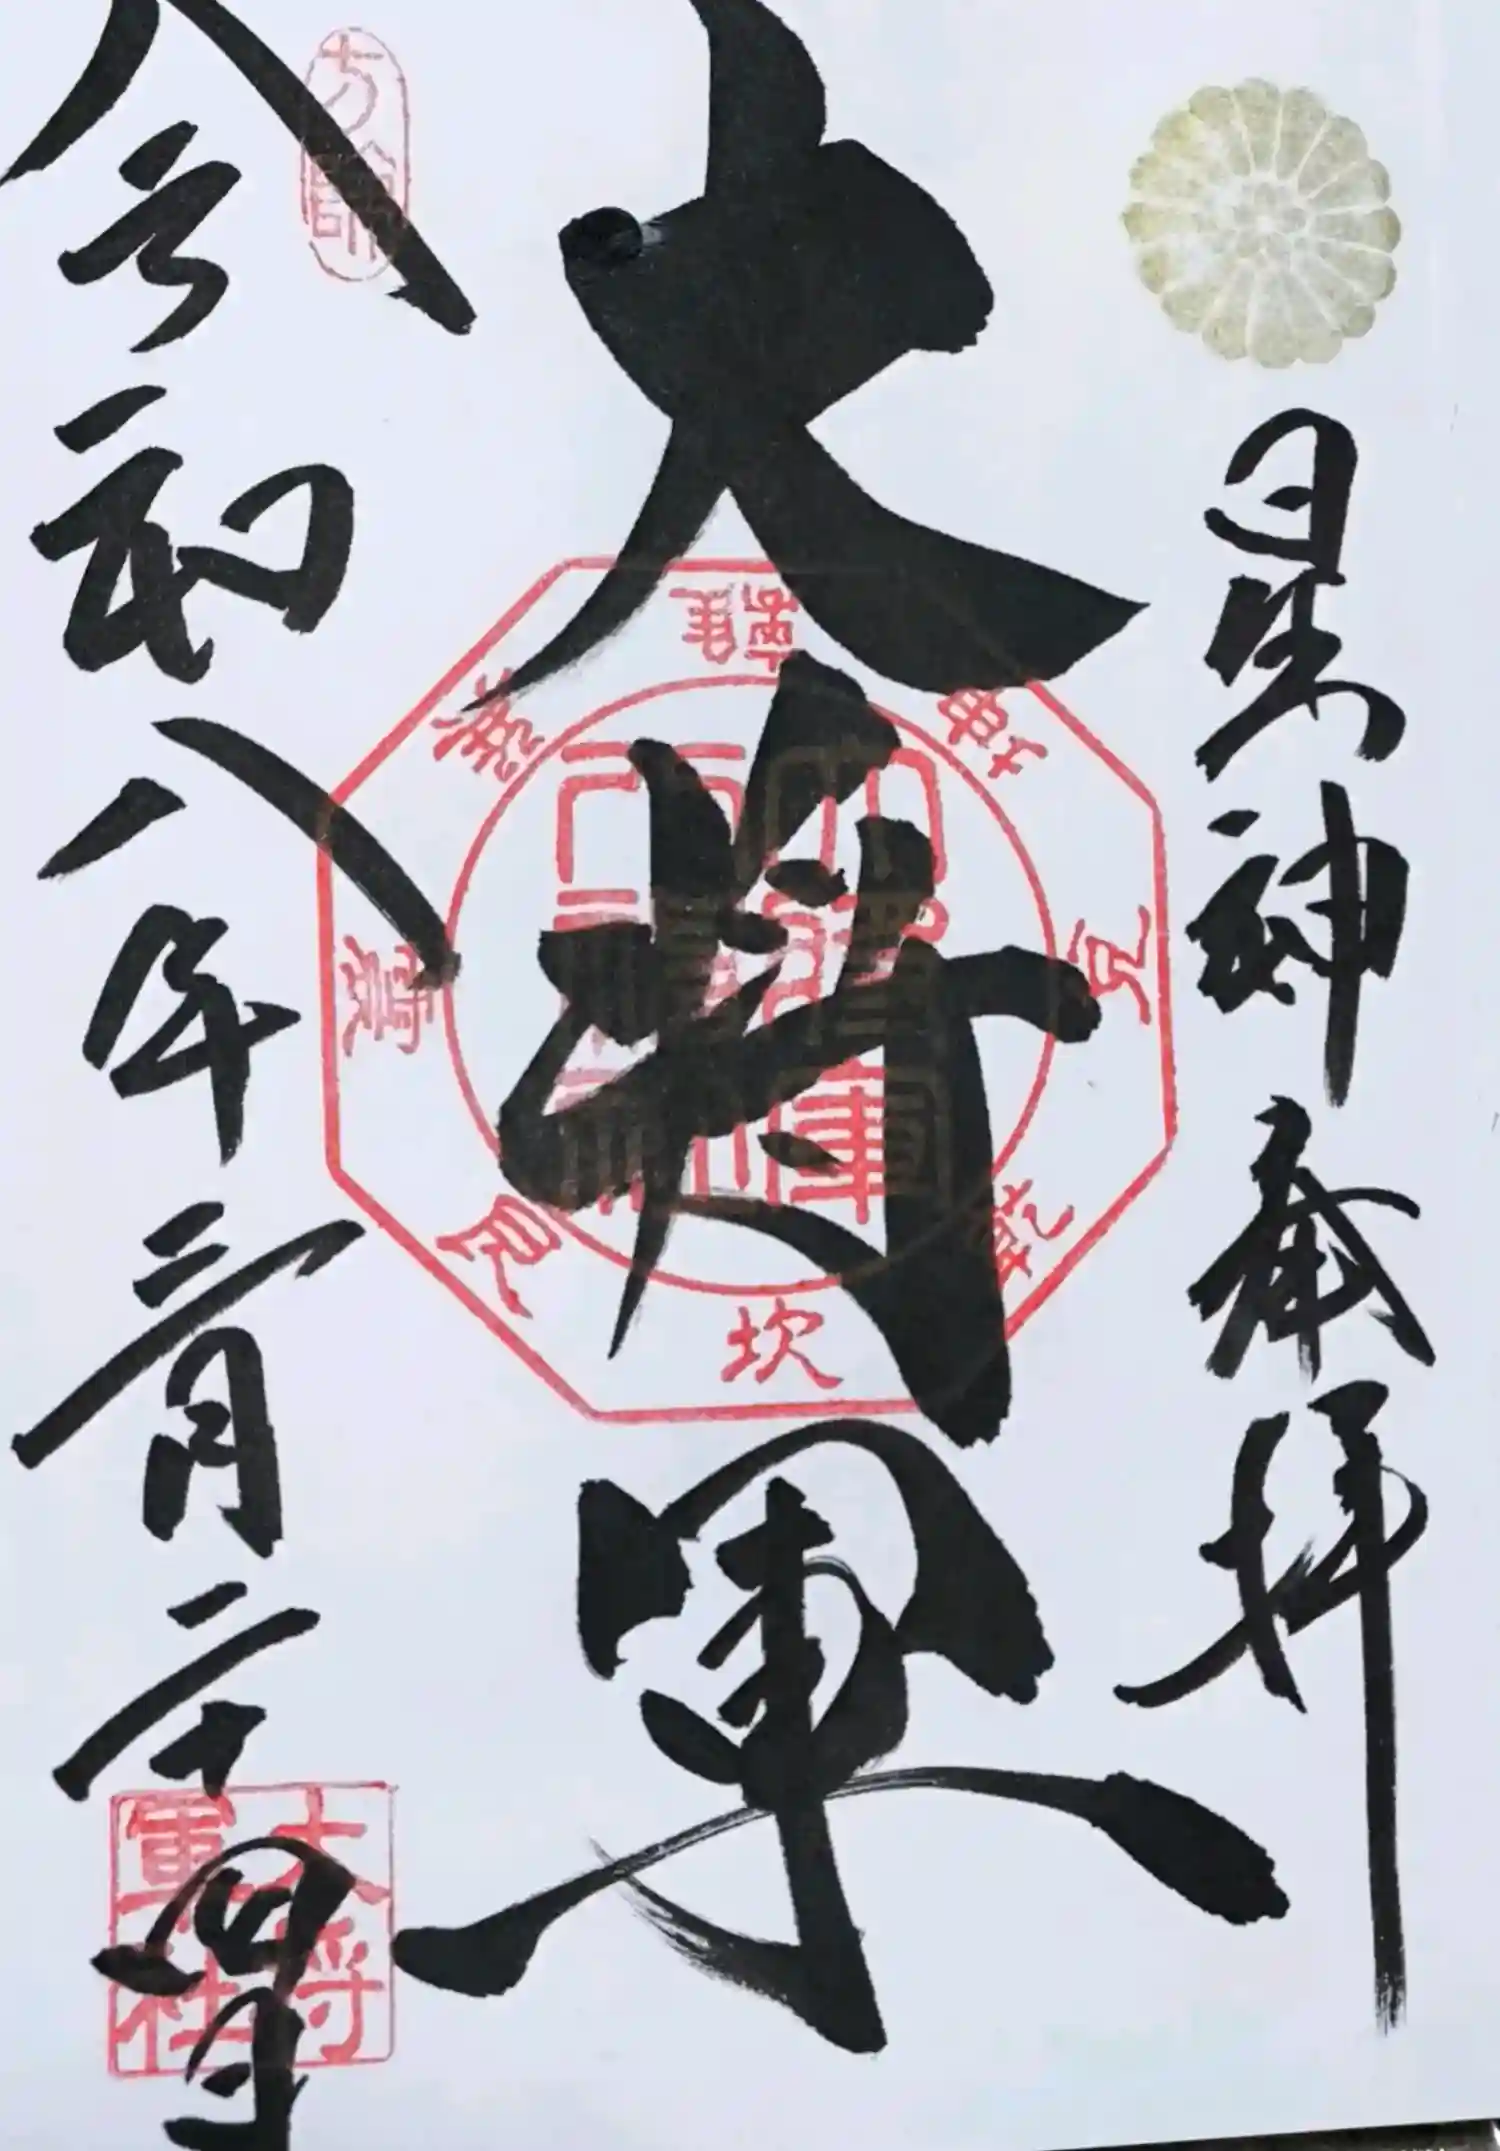 星神
奉拝
大将軍
令和八年二月二十四日
方除
坎
艮
乾
兌
震
巽
離
坤
大将
軍社